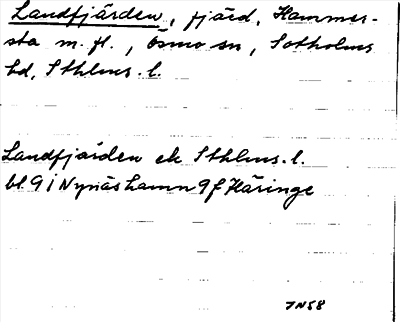 Landfjärden, fjärd, Hammer-
sta m. fl., Ösmo sn, Sotholms
hd, Sthlms. l.
Landfjärden ek Sthlms. l.
bl. 9 i Nynäshamn 9f Häringe
JN58